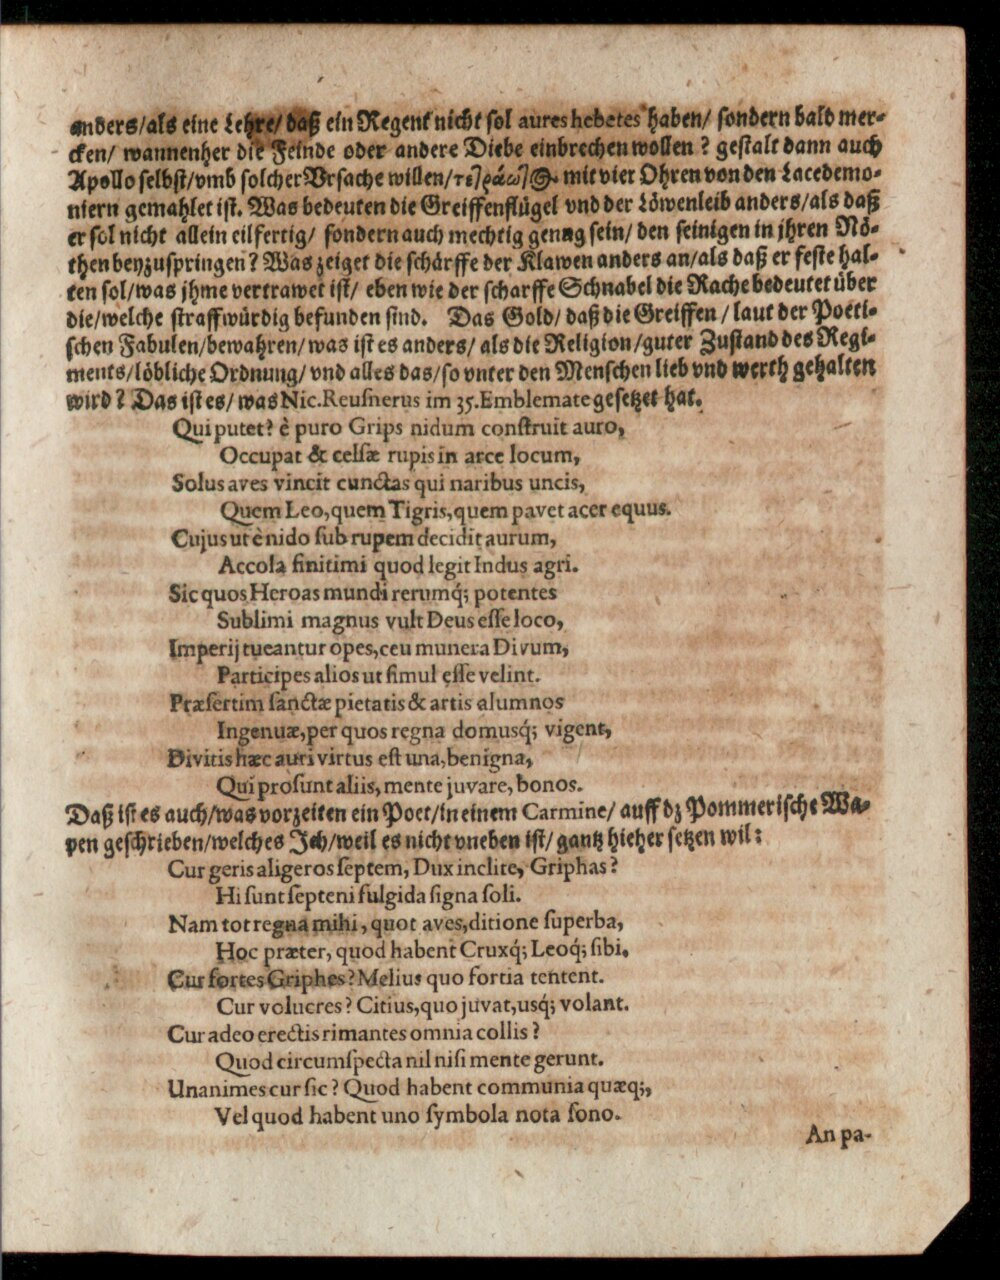 anders/als eine Lehre/ daß ein Regent nicht sol aures hebetes haben/ sondern bald mer-
cken/ wannenher die Feinde oder andere Diebe einbrechen wollen ? gestalt dann auch
Apollo selbst/vmb solcher Vrsache willen/ mit vier Ohren von den Lacedemo-
niern gemahlet ist. Was bedeuten die Greiffenflügel vnd der Löwenleib anders/als daß
er sol nicht allein eilfertig/ sondern auch mechtig genug sein/ den seinigen in jhren Nö-
then beyzuspringen? Was zeiget die schärffe der Klawen anders an/als daß er feste hal-
ten sol/was jhme vertrawet ist/ eben wie der scharffe Schnabel die Rache bedeutet über
die/welche straffwürdig befunden sind. Das Gold/ daß die Greiffen/ laut der Poeti-
schen Fabulen/bewahren/was ist es anders/ als die Religion/guter Zustand des Regi-
ments/löbliche Ordnung/ vnd alles das/so vnter den Menschen lieb vnd werth gehalten
wird? Das ist es/ was Nic. Reuſnerus im 35. Emblemate gesetzet hat.
Qui putet? è puro Grips nidum conſtruit auro,
Occupat & celſæ rupis in arce locum,
Solus aves vincit cunctas qui naribus uncis,
Quem Leo, quem Tigris, quem pavet acer equus.
Cujus ut è nido ſub rupem decidit aurum,
Accola finitimi quod legit Indus agri.
Sic quos Heroas mundi rerumq́; potentes
Sublimi magnus vult Deus eſſe loco,
Imperij tueantur opes, ceu munera Divum,
Participes alios ut ſimul eſſe velint.
Præſertim ſanctæ pietatis & artis alumnos
Ingenuæ, per quos regna domusq́; vigent,
Divitis hæc auri virtus eſt una, benigna,
Qui proſunt aliis, mente juvare, bonos.
Daß ist es auch/was vorzeiten ein Poet/in einem Carmine/ auff dz Pommerische Wa-
pen geschrieben/welches Ich/weil es nicht vneben ist/ gantz hieher setzen wil:
Cur geris aligeros ſeptem, Dux inclite, Griphas?
Hi ſunt ſepteni fulgida ſigna ſoli.
Nam tot regna mihi, quot aves, ditione ſuperba,
Hoc præter, quod habent Cruxq́; Leoq́; ſibi,
Cur fortes Griphes? Melius quo fortia tentent.
Cur volucres? Citius, quo juvat, usq́; volant.
Cur adeo erectis rimantes omnia collis?
Quod circumſpecta nil niſi mente gerunt.
Unanimes cur ſic? Quod habent communia quæq;,
Vel quod habent uno ſymbola nota ſono.
An pa-